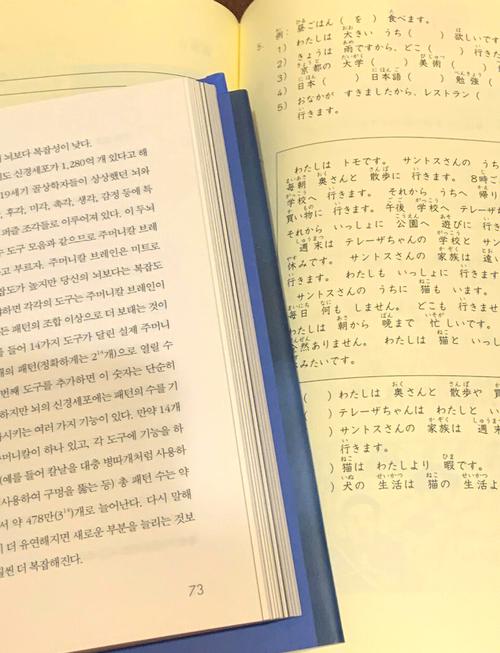 뇌보다 복잡성이 낮다.
도 신경세포가 1,280억 개 있다고 해
19세기 골상학자들이 상상했던 뇌와
, 후각, 미각, 촉각, 생각, 감정 등에 특
퍼즐 조각들로 이루어져 있다. 이 두뇌
수 도구 모음과 같으므로 주머니칼 브
고 부르자. 주머니칼 브레인은 미트로
잡도가 높지만 당신의 뇌보다는 복잡도
하면 각각의 도구는 주머니칼 브레인이
든 패턴의 조합 이상으로 더 보태는 것이
를 들어 14가지 도구가 달린 실제 주머니
개의 패턴(정확하게는 2¹⁴개)으로 열릴 수
번째 도구를 추가하면 이 숫자는 단순히
하지만 뇌의 신경세포에는 패턴의 수를 기
가시키는 여러 가지 기능이 있다. 만약 14개
주머니칼이 하나 있고, 각 도구에 기능을 하
(예를 들어 칼날을 대충 병따개처럼 사용하
사용하여 구멍을 뚫는 등) 총 패턴 수는 약
서 약 478만(3¹⁴)개로 늘어난다. 다시 말해
이 더 유연해지면 새로운 부분을 늘리는 것보
씬 더 복잡해진다.
73
例: 昼ごはん ( を ) 食べます。
1) わたしは 大きい うち ( ) 欲しいです
2) きょうは 雨ですから、どこ ( ) 行きた
3) 京都の 大学 ( ) 美術 (
4) 日本 ( ) 日本語 ( ) 勉強 (
5) おなかが すきましたから、レストラン (
行きます。
わたしは トモです。 サントスさんの うち
毎朝 奥さんと 散歩に 行きます。 8時ご
学校へ 行きます。 それから うちへ 帰り
買い物に 行きます。 午後 学校へ テレーザ
それから いっしょに 公園へ 遊びに 行き
週末は テレーザちゃんの 学校と サン
休みです。 サントスさんの 家族は 遠い
行きます。 わたしも いっしょに 行きます
サントスさんの うちに 猫も います。
毎日 何も しません。 どこも 行きませ
わたしは 朝から 晩まで 忙しいです。
ありません。 わたしは 猫と いっし
みたいです。
) わたしは 奥さんと 散歩や 買
) テレーザちゃんは わたしと い
) サントスさんの 家族は 週末
行きます。
) 猫は わたしより 暇です。
) 犬の 生活は 猫の 生活よ